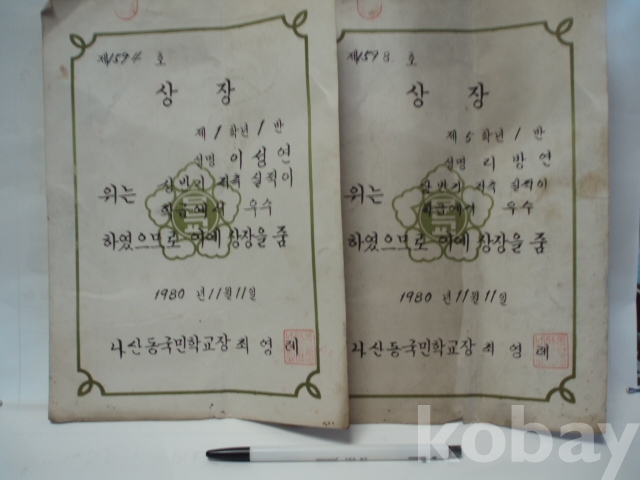 제1594호
상 장
제 1 학년 1 반
성명 이성연
위는
상반기 저축 실적이
학급에서 우수
하였으므로 이에 상장을 줌
1980 년 11월 11일
나산동국민학교장 최 영 례
제1598 호
상 장
제 5 학년 1 반
성명 리 방 연
위는
상반기 저축 실적이
학급에서 우수
하였으므로 이에 상장을 줌
1980 년 11월 11일
나산동국민학교장 최 영 례
kobay